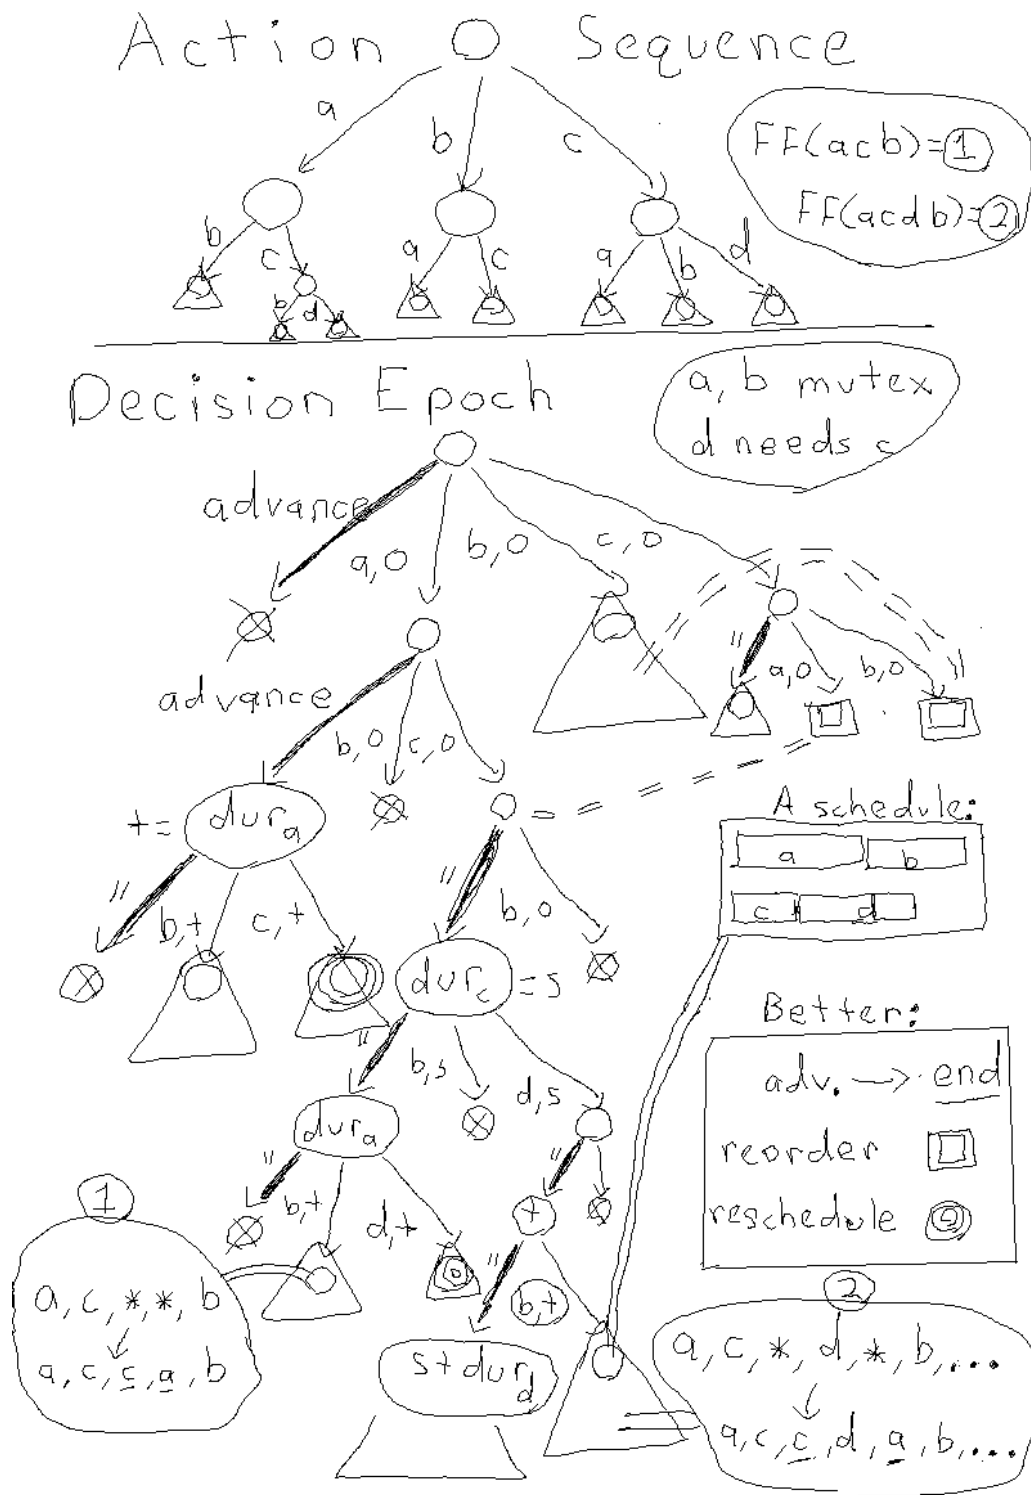 Action Sequence
a
b
c
FF(acb)=1
FF(acdb)=2
b
c
a
c
a
b
d
b
d
Decision Epoch
a, b mutex
d needs c
advance
a,0
b,0
c,0
"
a,0
b,0
"
advance
b,0
c,0
t= dur_a
A schedule:
a b
c d
"
b,t
c,t
"
b,0
dur_c = s
Better:
adv. -> end
reorder
reschedule
"
b,s
d,s
dur_a
"
b,t
d,t
"
t
"
b,t
s+dur_d
1
a, c, *, *, b
a, c, c, a, b
2
a, c, *, d, *, b, ...
a, c, c, d, a, b, ...